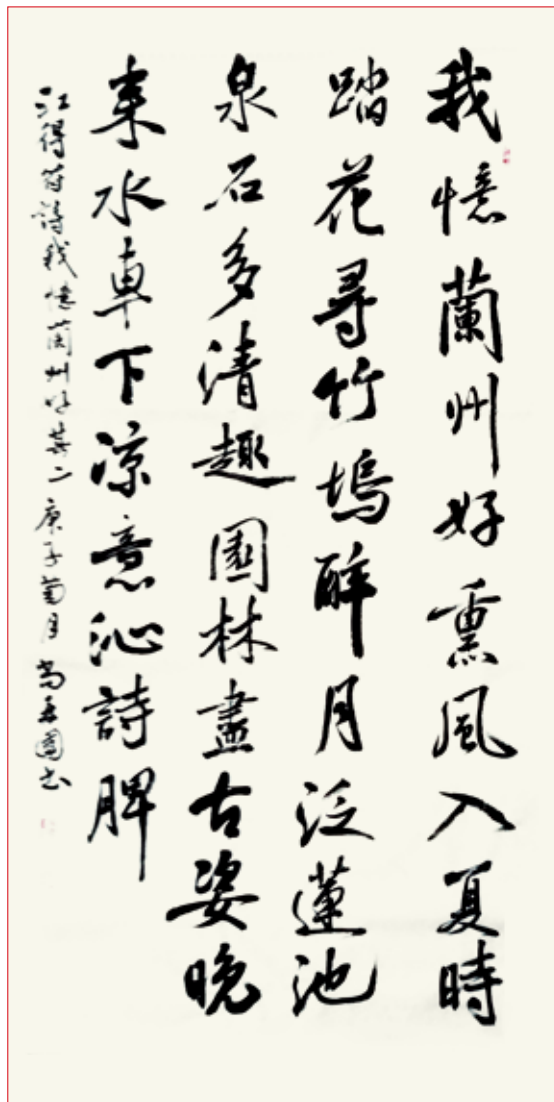 我憶蘭州好熏風入夏時
踏花尋竹塢醉月泛蓮池
泉石多清趣園林盡古姿晚
來水車下凉意沁詩脾
江得符詩我憶蘭州好其二庚子菊月